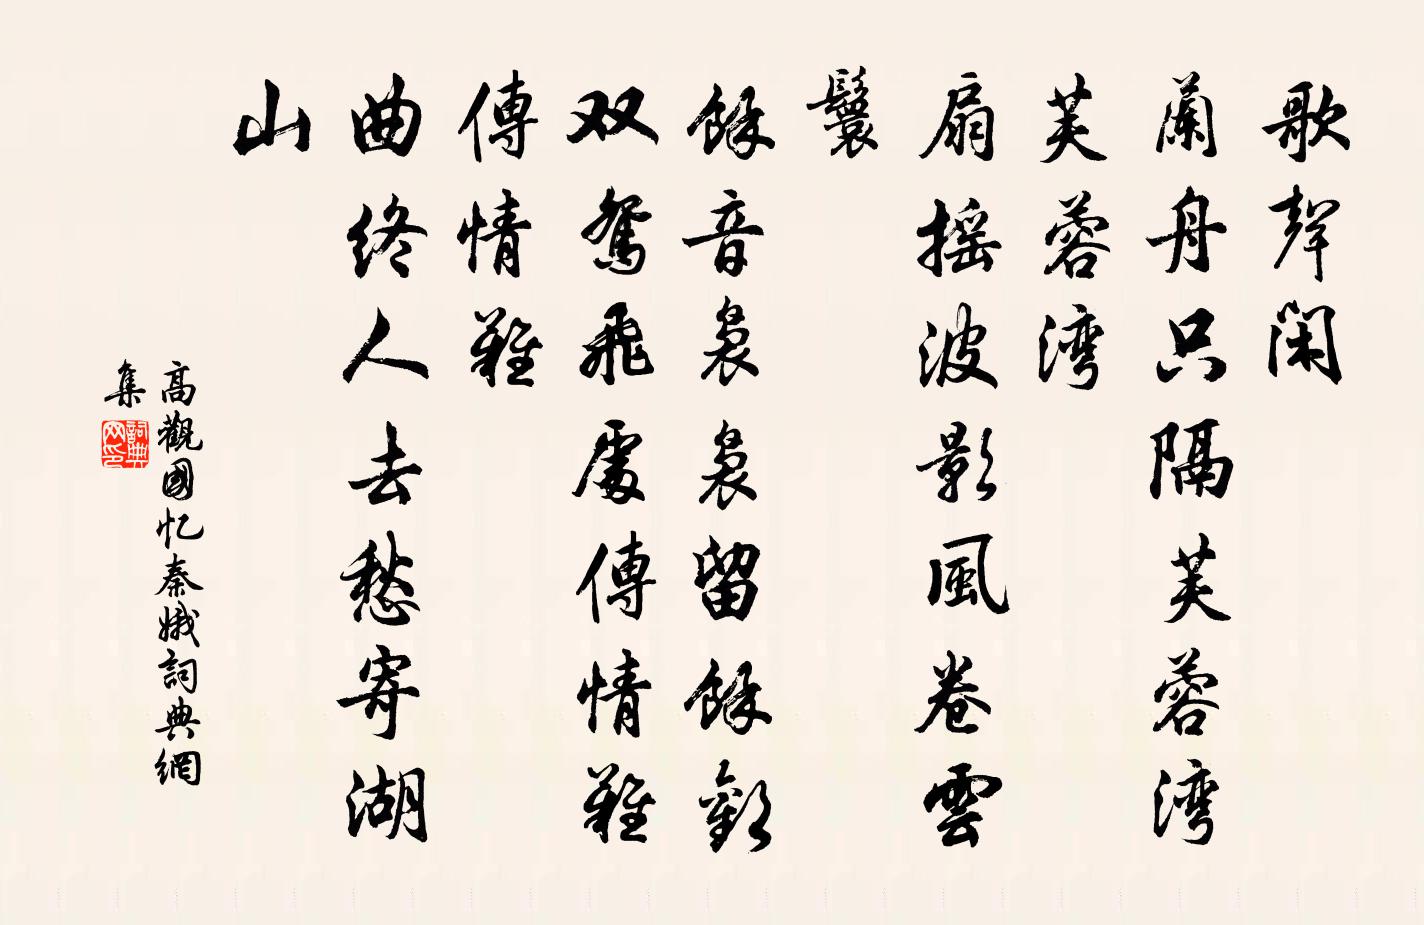 歌聲闲
蘭舟只隔芙蓉湾
芙蓉湾
扇摇波影風卷雲
鬟
餘音袅袅留餘歡
双鴛飛處傳情難
傳情難
曲终人去愁寄湖
山
高觀國忆秦娥詞典網
集
詞典
网印